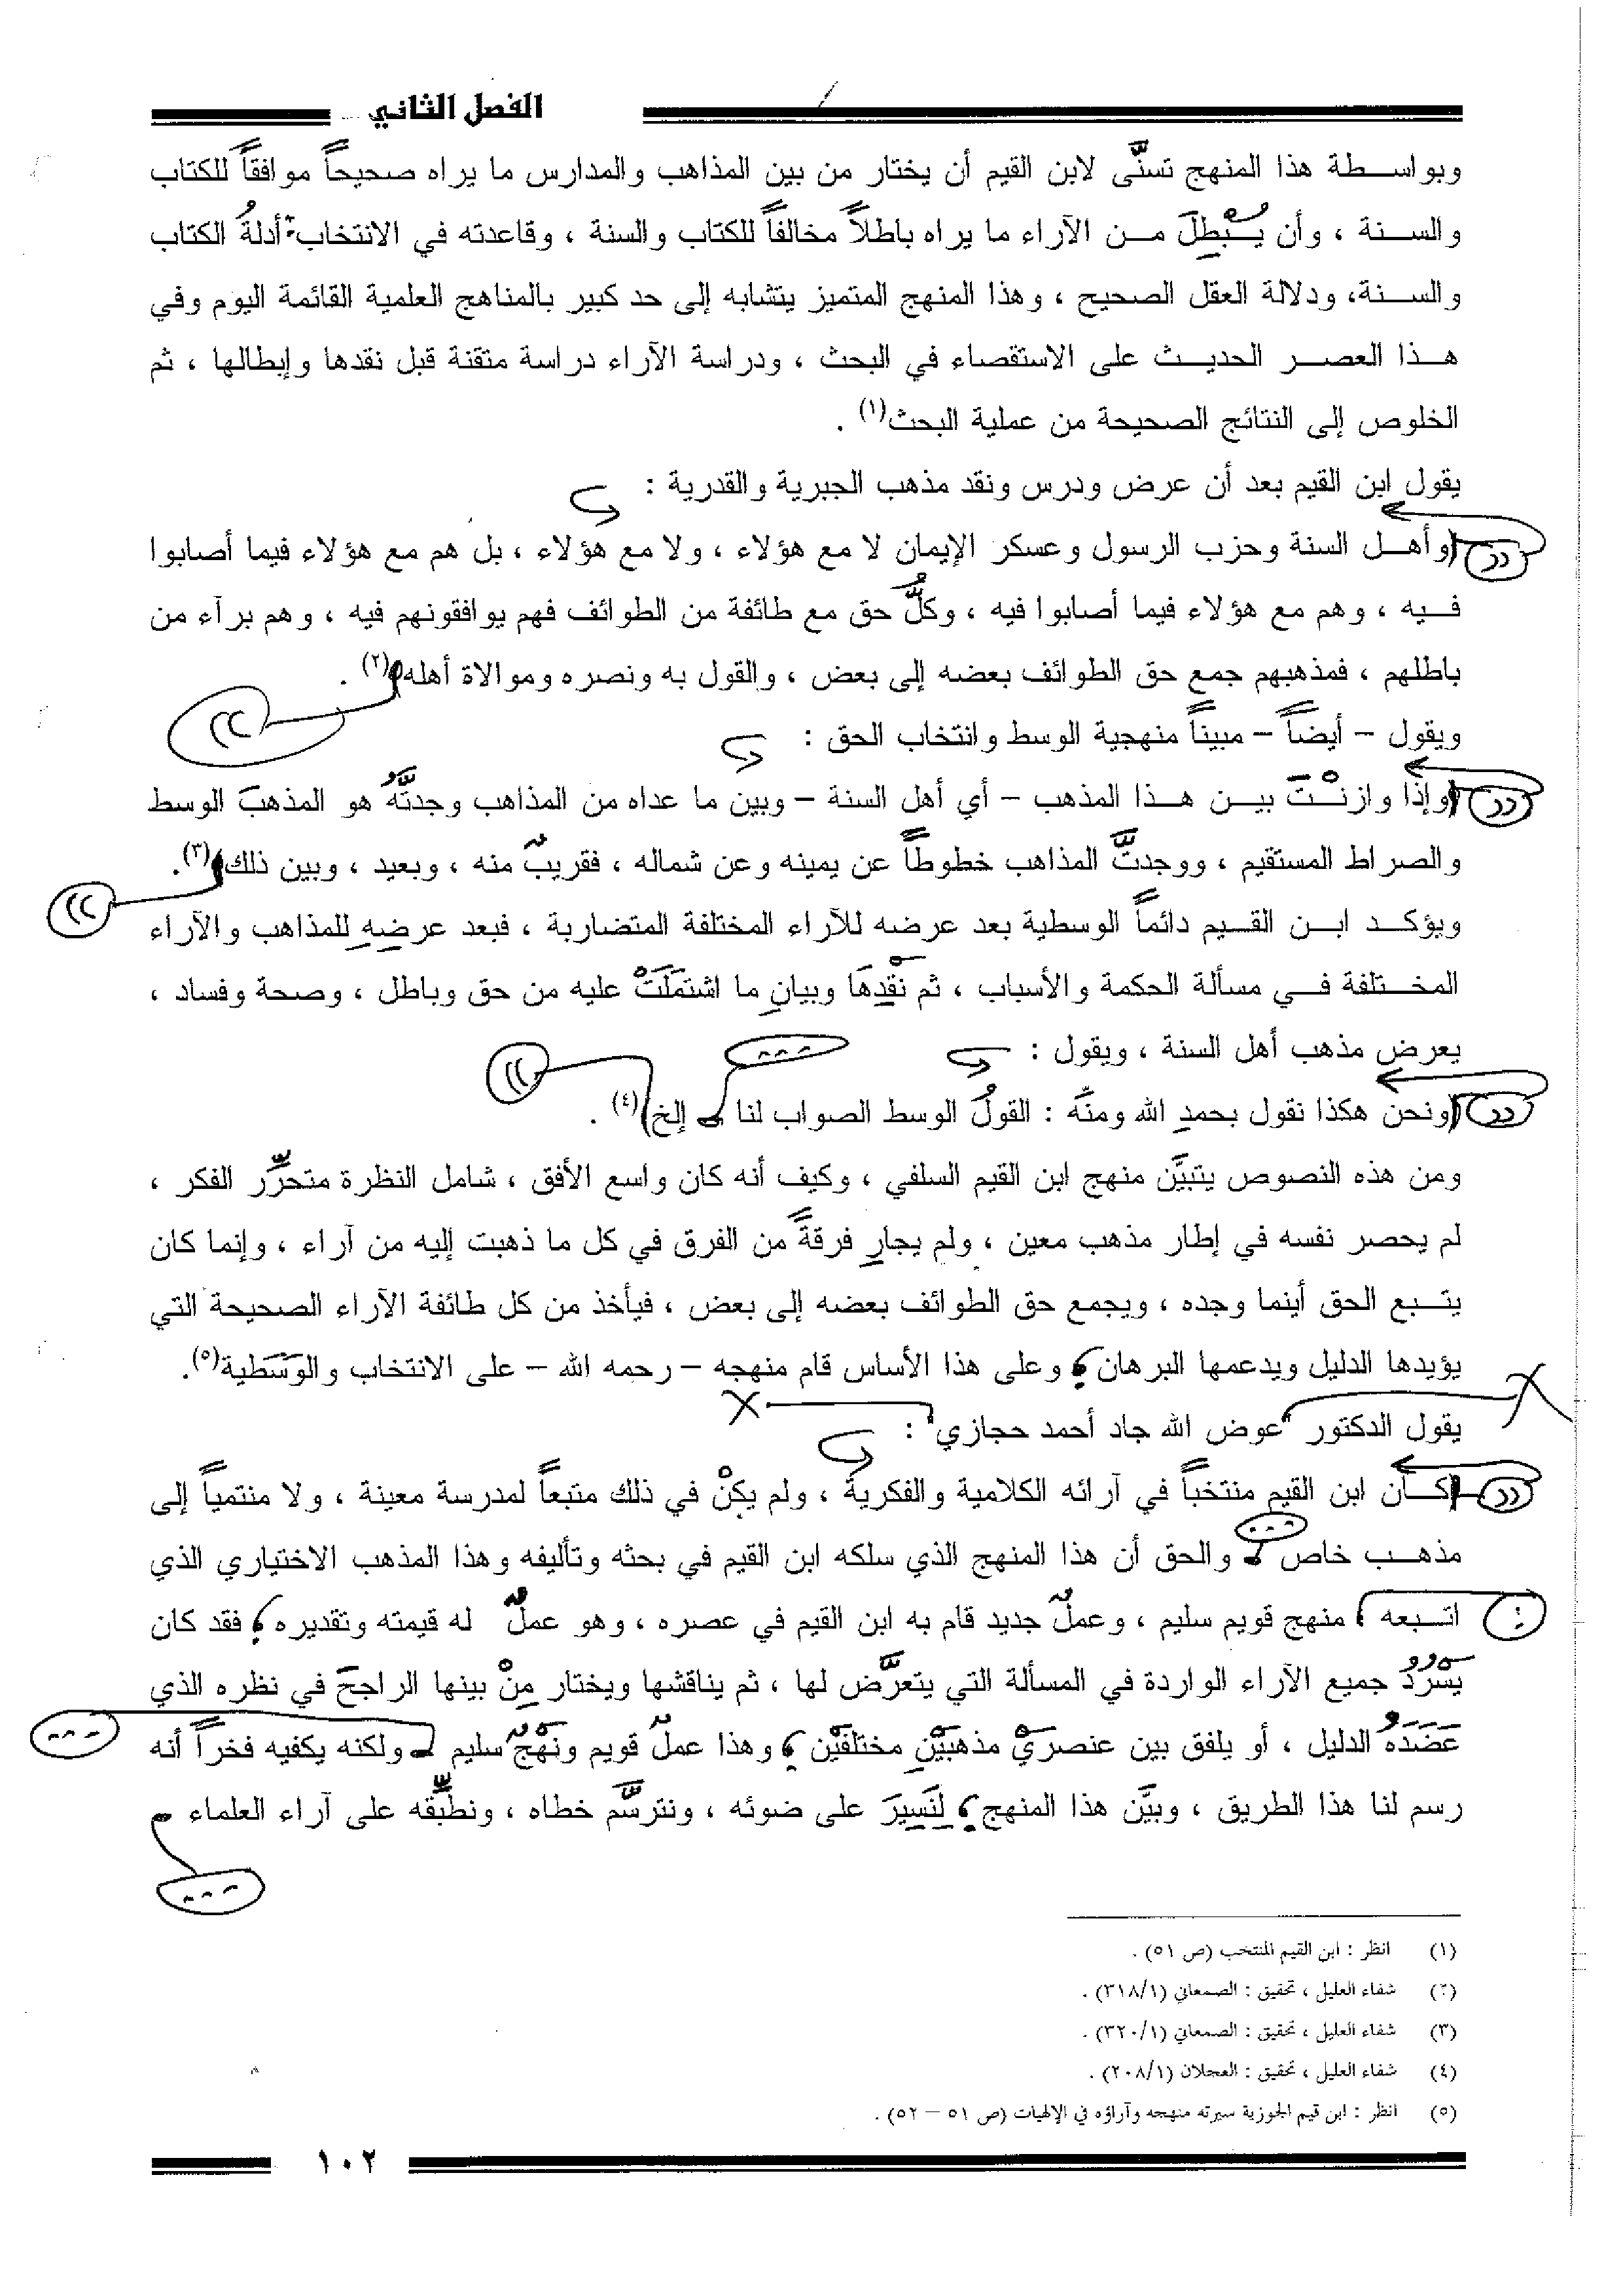 الفصل الثاني
وبواسطة هذا المنهج تسنَّى لابن القيم أن يختار من بين المذاهب والمدارس ما يراه صحيحاً موافقاً للكتاب
والسنة ، وأن يُبْطِلَ من الآراء ما يراه باطلاً مخالفاً للكتاب والسنة ، وقاعدته في الانتخاب : أدلةُ الكتاب
والسنة، ودلالة العقل الصحيح ، وهذا المنهج المتميز يتشابه إلى حد كبير بالمناهج العلمية القائمة اليوم وفي
هذا العصر الحديث على الاستقصاء في البحث ، ودراسة الآراء دراسة متقنة قبل نقدها وإبطالها ، ثم
الخلوص إلى النتائج الصحيحة من عملية البحث(١) .
يقول ابن القيم بعد أن عرض ودرس ونقد مذهب الجبرية والقدرية :
(وأهل السنة وحزب الرسول وعسكر الإيمان لا مع هؤلاء ، ولا مع هؤلاء ، بل هم مع هؤلاء فيما أصابوا
فيه ، وهم مع هؤلاء فيما أصابوا فيه ، وكلُّ حق مع طائفة من الطوائف فهم يوافقونهم فيه ، وهم برآء من
باطلهم ، فمذهبهم جمع حق الطوائف بعضه إلى بعض ، والقول به ونصره وموالاة أهله)(٢) .
ويقول – أيضاً – مبيناً منهجية الوسط وانتخاب الحق :
(وإذا وازنْتَ بين هذا المذهب – أي أهل السنة – وبين ما عداه من المذاهب وجدتَهُ هو المذهبَ الوسط
والصراط المستقيم ، ووجدتَّ المذاهب خطوطاً عن يمينه وعن شماله ، فقريبٌ منه ، وبعيد ، وبين ذلك)(٣).
ويؤكد ابن القيم دائماً الوسطية بعد عرضه للآراء المختلفة المتضاربة ، فبعد عرضِهِ للمذاهب والآراء
المختلفة في مسألة الحكمة والأسباب ، ثم نقْدِهَا وبيانِ ما اشتَمَلَتْ عليه من حق وباطل ، وصحة وفساد ،
يعرض مذهب أهل السنة ، ويقول :
(ونحن هكذا نقول بحمدِ الله ومنِّه : القولُ الوسط الصواب لنا ... إلخ)(٤) .
ومن هذه النصوص يتبيَّن منهج ابن القيم السلفي ، وكيف أنه كان واسع الأفق ، شامل النظرة متحرِّر الفكر ،
لم يحصر نفسه في إطار مذهب معين ، ولم يجارِ فرقةً من الفرق في كل ما ذهبت إليه من آراء ، وإنما كان
يتبع الحق أينما وجده ، ويجمع حق الطوائف بعضه إلى بعض ، فيأخذ من كل طائفة الآراء الصحيحة التي
يؤيدها الدليل ويدعمها البرهان ؛ وعلى هذا الأساس قام منهجه – رحمه الله – على الانتخاب والوَسَطية(٥).
يقول الدكتور "عوض الله جاد أحمد حجازي" :
(كان ابن القيم منتخباً في آرائه الكلامية والفكرية ، ولم يكنْ في ذلك متبعاً لمدرسة معينة ، ولا منتمياً إلى
مذهب خاص ... والحق أن هذا المنهج الذي سلكه ابن القيم في بحثه وتأليفه وهذا المذهب الاختياري الذي
اتبعه ؛ منهج قويم سليم ، وعملٌ جديد قام به ابن القيم في عصره ، وهو عملٌ له قيمته وتقديره ؛ فقد كان
يسْرُدُ جميع الآراء الواردة في المسألة التي يتعرَّض لها ، ثم يناقشها ويختار مِنْ بينها الراجحَ في نظره الذي
عَضَدَهُ الدليل ، أو يلفق بين عنصريْ مذهبَيْنِ مختلفَيْن ؛ وهذا عملٌ قويم ونهْجٌ سليم ... ولكنه يكفيه فخراً أنه
رسم لنا هذا الطريق ، وبيَّن هذا المنهج ؛ لِنَسِيرَ على ضوئه ، ونترسَّم خطاه ، ونطبِّقه على آراء العلماء ...
(١) انظر : ابن القيم المنتخب (ص ٥١) .
(٢) شفاء العليل ، تحقيق : الصمعاني (٣١٨/١) .
(٣) شفاء العليل ، تحقيق : الصمعاني (٣٢٠/١) .
(٤) شفاء العليل ، تحقيق : العجلان (٢٠٨/١) .
(٥) انظر : ابن قيم الجوزية سيرته منهجه وآراؤه في الإلهيات (ص ٥١ – ٥٢) .
١٠٢